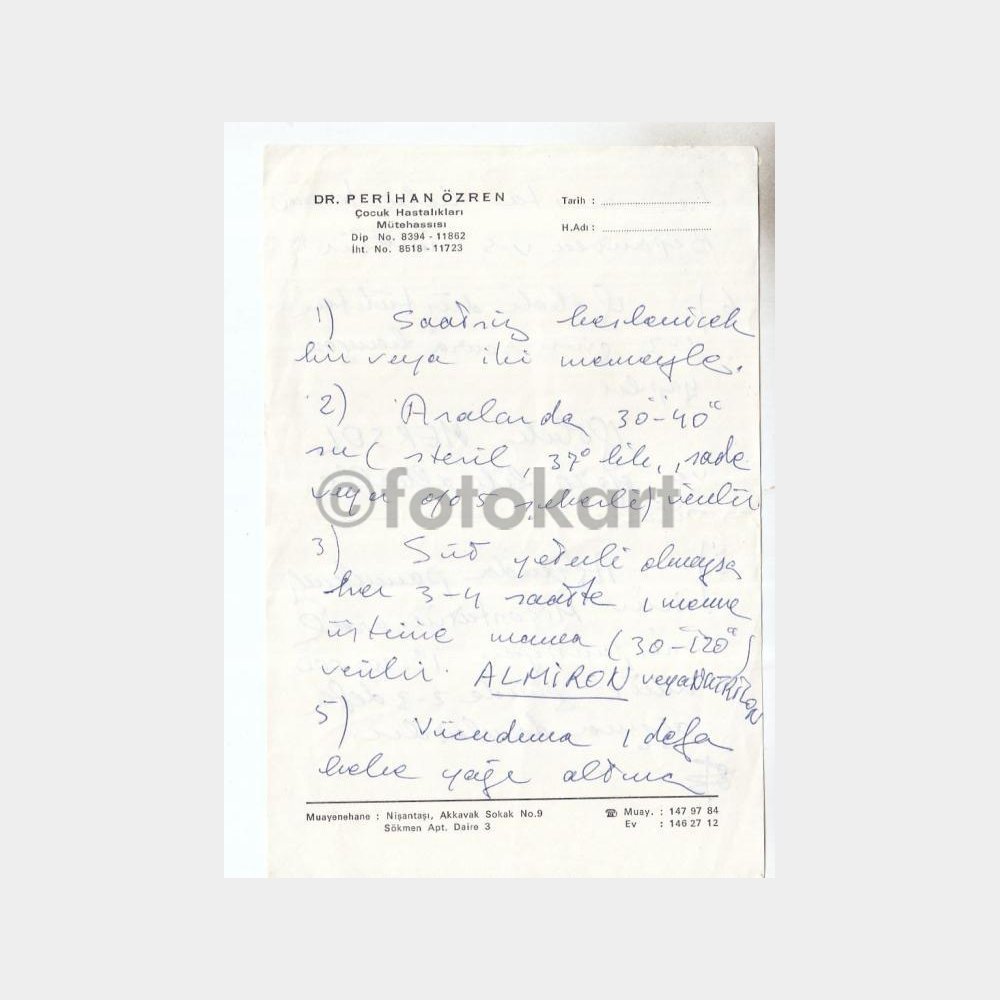 DR. PERİHAN ÖZREN
Çocuk Hastalıkları
Mütehassısı
Dip No. 8394 - 11862
İht. No. 8518 - 11723
Tarih :
H.Adı :
1) Saatsiz beslenicek
bir veya iki memeyle.
2) Aralarda 30-40"
su ( steril, 37° lik, sade
veya %5 şekerle) verilir
©fotokart
3) Süt yeterli olmaysa
her 3-4 saatte 1 meme
üstüne mama (30-120")
verilir. ALMİRON veya NUTRİLON
5) Vücuduna 1 defa
bebe yağı altına
Muayenehane : Nişantaşı, Akkavak Sokak No.9
Sökmen Apt. Daire 3
☎ Muay. : 147 97 84
Ev : 146 27 12